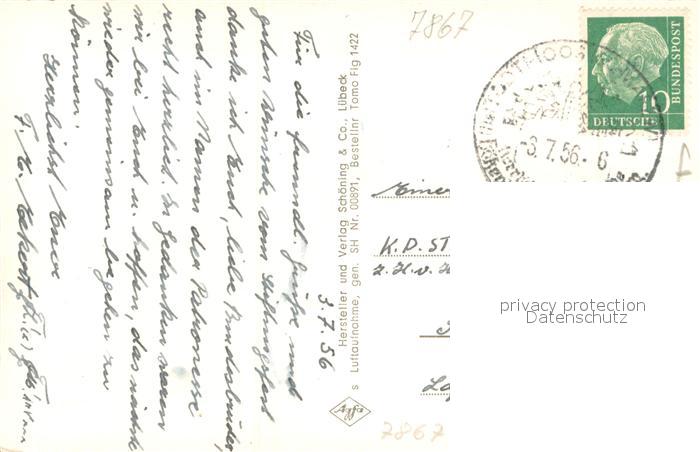 7867
3.7.56
Für die freundl. Grüße und
guten Wünsche vom Stiftungsfest
danke ich Euch, liebe Bundesbrüder,
auch im Namen der Patronesse
recht herzlich. In Gedanken waren
wir bei Euch u. hoffen, das nächste
wieder gemeinsam begehen zu
können.
Herzlichst Euer
Hersteller und Verlag Schöning & Co., Lübeck
s Luftaufnahme, gen. SH Nr. 00891, Bestellnr Tomo Fig 1422
Agfa
7867
10
DEUTSCHE
BUNDESPOST
-3.7.56.-6
K.D.ST
z.H.v.H
privacy protection
Datenschutz